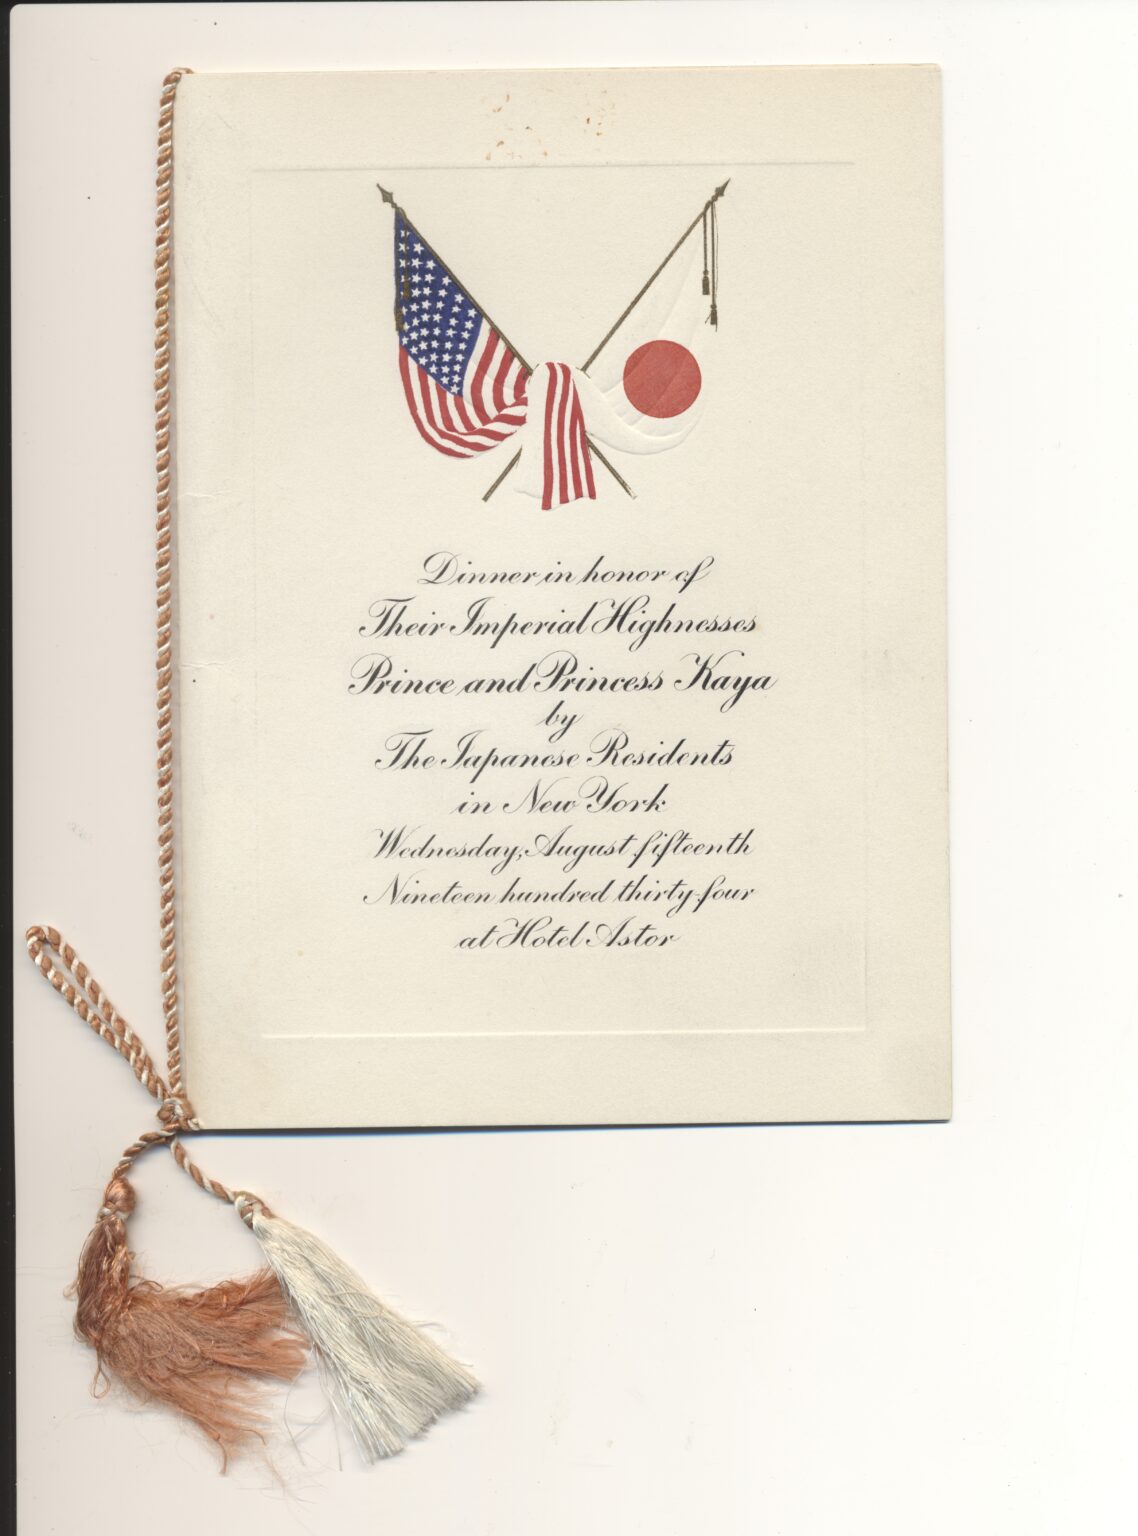 Dinner in honor of
Their Imperial Highnesses
Prince and Princess Kaya
by
The Japanese Residents
in New York
Wednesday, August fifteenth
Nineteen hundred thirty-four
at Hotel Astor